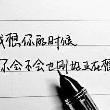 我想你的时候
你会不会也刚好正在想